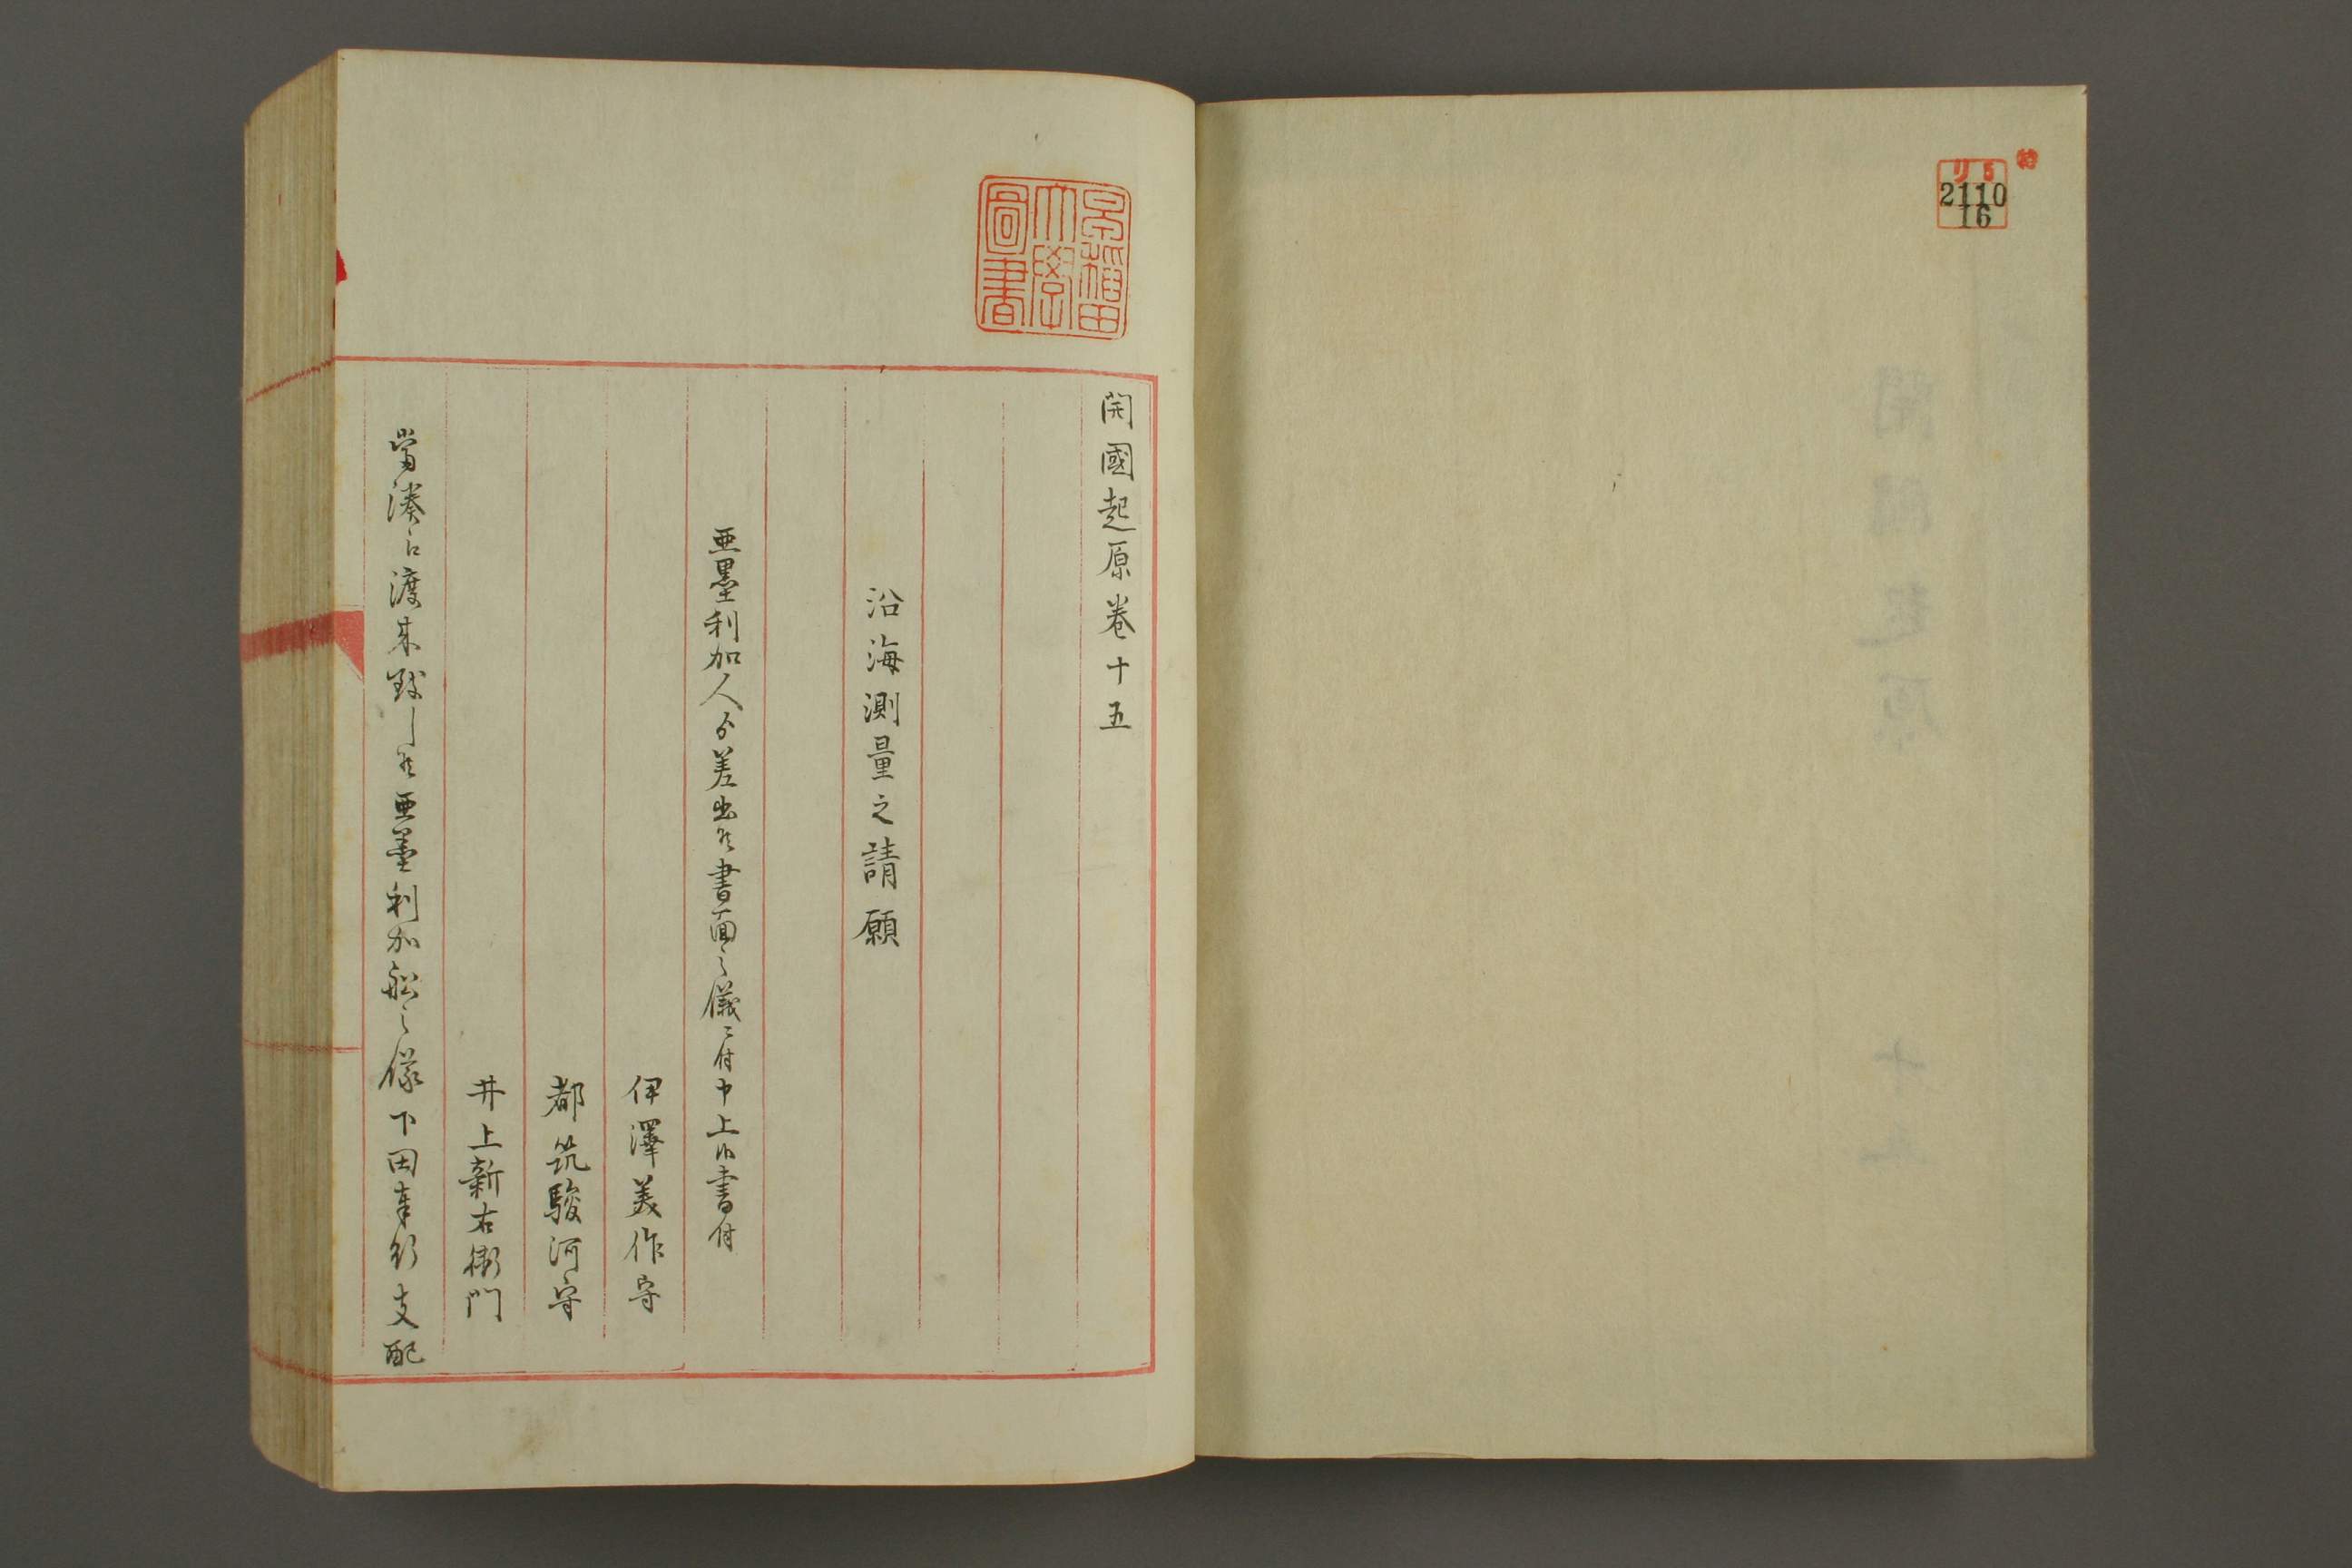 特
リ5
2110
16
早稲田
大學
圖書
開國起原卷十五
沿海測量之請願
亜墨利加人ゟ差出候書面之儀ニ付申上候書付
伊澤美作守
都筑駿河守
井上新右衛門
當湊江渡来致し候亜墨利加船之儀下田奉行支配